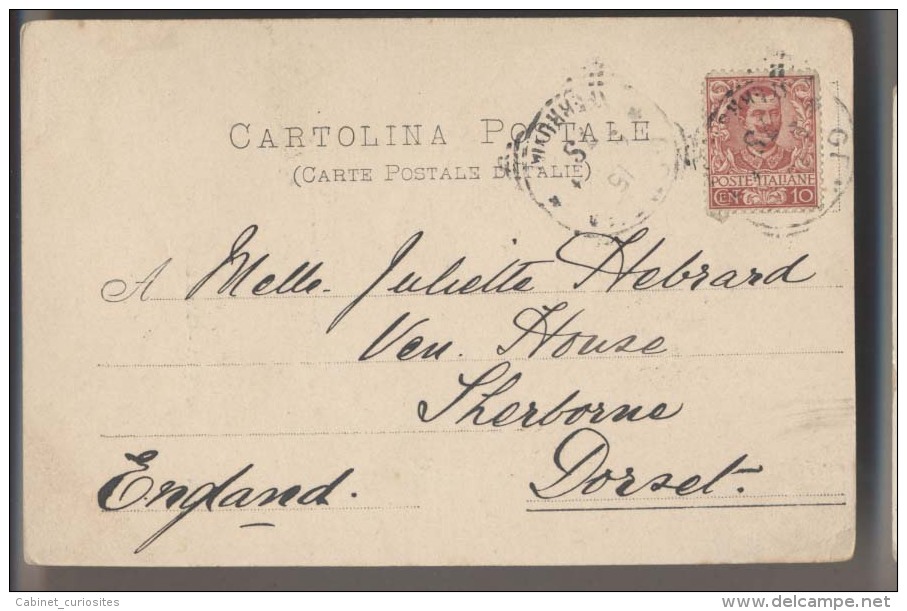 CARTOLINA POSTALE
(CARTE POSTALE D'ITALIE)
POSTE ITALIANE
CEN 10
A Melle. Juliette Hebrard
Ven. House
Sherborne
Dorset.
England.
Cabinet_curiosites
www.delcampe.net